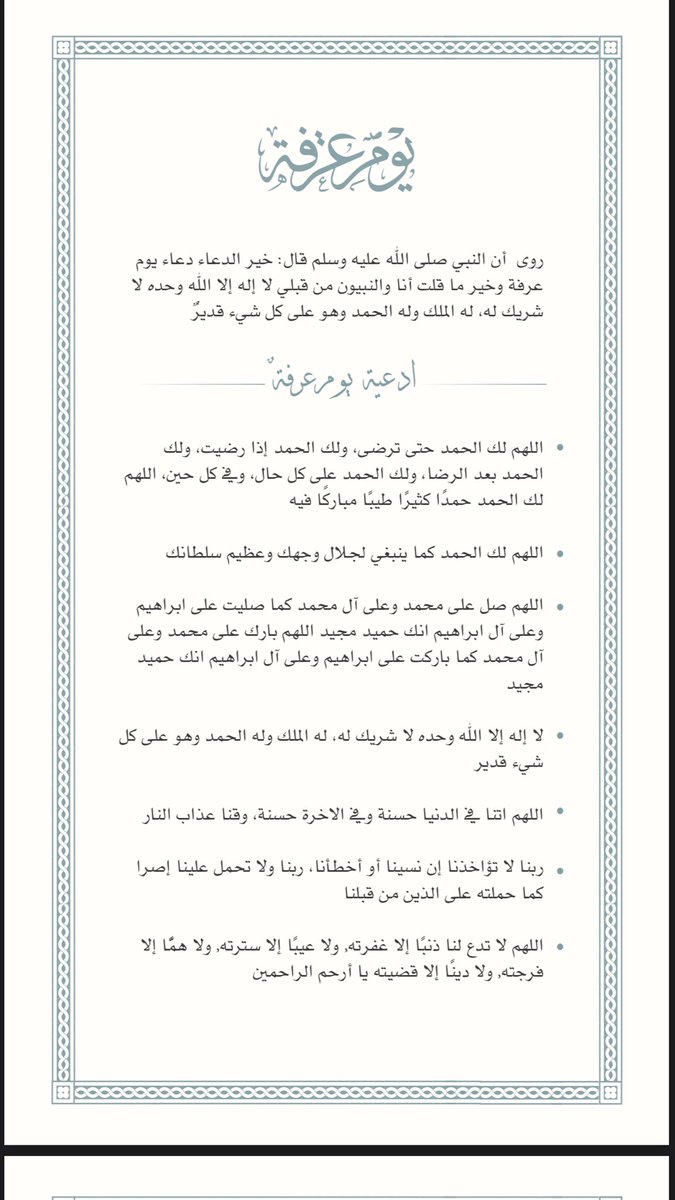 يوم عرفة
روى أن النبي صلى الله عليه وسلم قال: خير الدعاء دعاء يوم
عرفة وخير ما قلت أنا والنبيون من قبلي لا إله إلا الله وحده لا
شريك له، له الملك وله الحمد وهو على كل شيء قديرٌ
ادعية يوم عرفة
• اللهم لك الحمد حتى ترضى، ولك الحمد إذا رضيت، ولك
الحمد بعد الرضا، ولك الحمد على كل حال، وفي كل حين، اللهم
لك الحمد حمدًا كثيرًا طيبًا مباركًا فيه
• اللهم لك الحمد كما ينبغي لجلال وجهك وعظيم سلطانك
• اللهم صل على محمد وعلى آل محمد كما صليت على ابراهيم
وعلى آل ابراهيم انك حميد مجيد اللهم بارك على محمد وعلى
آل محمد كما باركت على ابراهيم وعلى آل ابراهيم انك حميد
مجيد
• لا إله إلا الله وحده لا شريك له، له الملك وله الحمد وهو على كل
شيء قدير
• اللهم اتنا في الدنيا حسنة وفي الاخرة حسنة، وقنا عذاب النار
• ربنا لا تؤاخذنا إن نسينا أو أخطأنا، ربنا ولا تحمل علينا إصرا
كما حملته على الذين من قبلنا
• اللهم لا تدع لنا ذنبًا إلا غفرته, ولا عيبًا إلا سترته, ولا همًّا إلا
فرجته, ولا دينًا إلا قضيته يا أرحم الراحمين